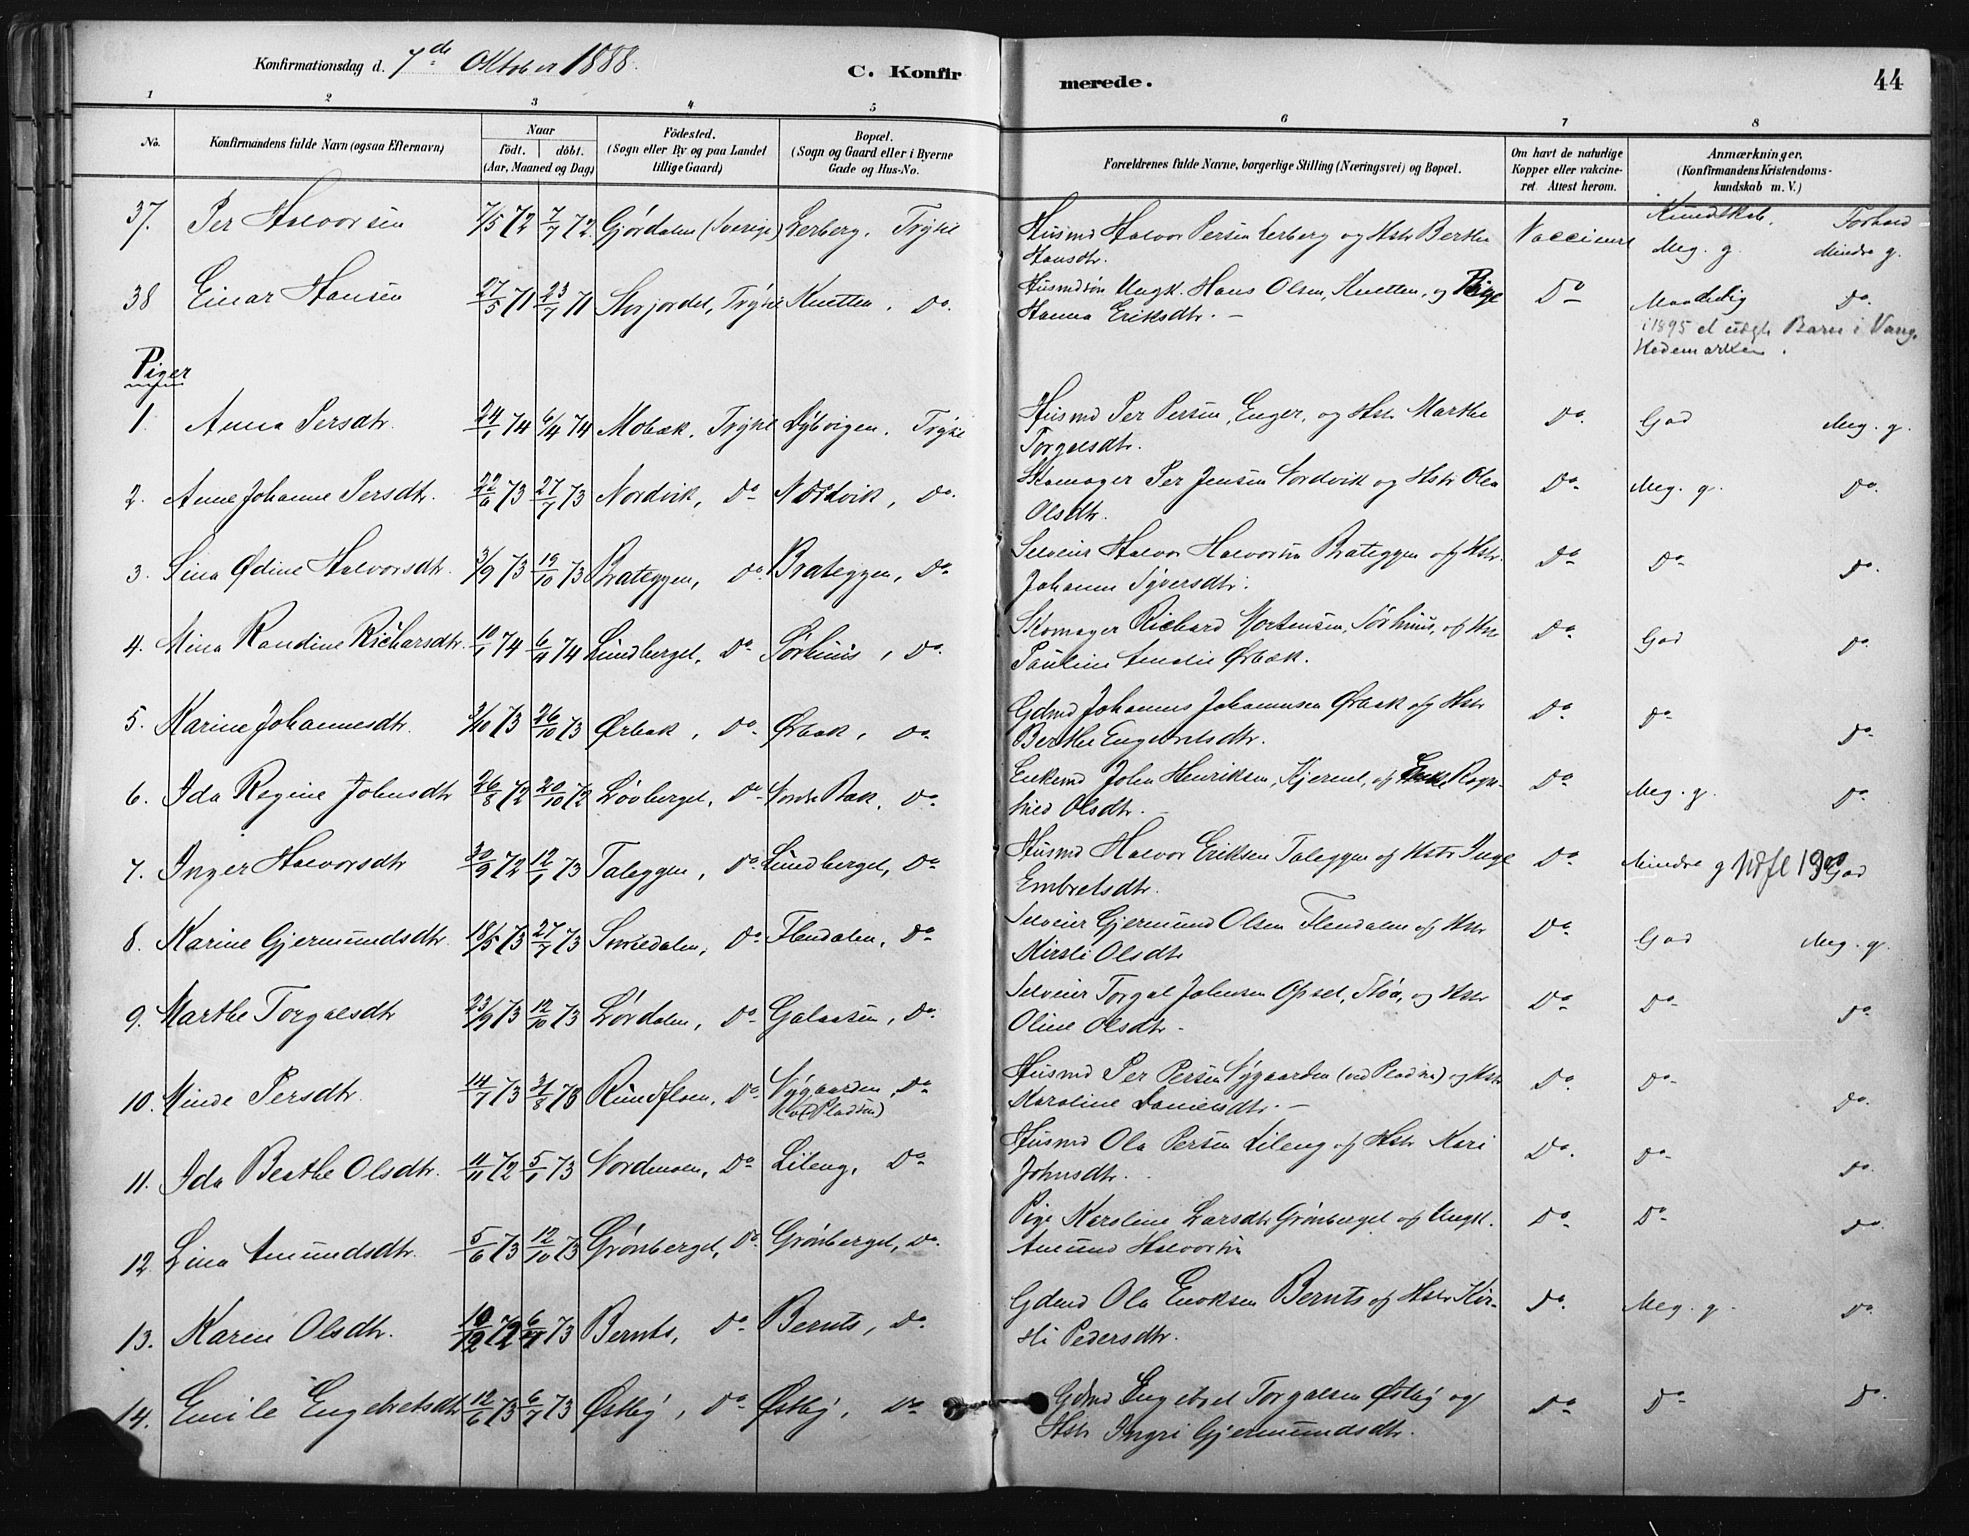 Konfirmationsdag d. 7de Oktober 1888.
C. Konfirmerede.
44
1 2 3 4 5 6 7 8
No. Konfirmandens fulde Navn (ogsaa Efternavn) Naar födt. döbt. (Aar, Maaned og Dag) Födested. (Sogn eller By og paa Landet tillige Gaard) Bopæl. (Sogn og Gaard eller i Byerne Gade og Hus-No. Forældrenes fulde Navne, borgerlige Stilling (Næringsvei) og Bopæl. Om havt de naturlige Kopper eller vakcineret. Attest herom. Anmærkninger. (Konfirmandens Kristendomskundskab m. V.)
Kundskab. Forhold
37. Per Halvorsen 7/5 72 7/7 72. Gjördalen (Sverige) Lerberg, Trysil Husmd Halvor Persen Lerberg og Hstr Berthe Vaccineret Meg. g. Mindre g.
Hansdtr.
38 Einar Hansen 27/5 71 23/7 71 Storjordet, Trysil Knetten, Do. Husmdsön Ungk. Hans Olsen, Knetten, og Pige Do Maadelig Do.
Hanna Eriksdtr. —
i 1895 et uægte Barn i Vang,
Hedemarken.
Piger
1. Anna Persdtr. 24/1 74 6/4 74 Mobæk, Trysil Dybvigen, Trysil Husmd Per Persen, Enger, og Hstr Marthe Do. God Meg. g.
Torgalsdtr.
2. Anne Johanne Persdtr. 22/6 73 27/7 73 Nordvik, Do Nordvik, Do. Skomager Per Jensen Nordvik og Hstr Olea Do. Meg. g. Do.
Olsdtr.
3. Sina Ødine Halvorsdtr. 3/9 73 19/10 73 Brateggen, Do. Brateggen, Do Selveier Halvor Halvorsen Brateggen og Hstr. Do Do Do.
Johanne Syversdtr.
4. Mina Randine Richarsdtr. 10/1 74 6/4 74 Lundberget, Do Sørhuus, Do. Skomager Richard Mortensen, Sörhuus, og Hstr Do. God Do
Pauline Amalie Ørbæk.
5. Karine Johannesdtr. 3/10 73 26/10 73 Ørbæk, Do. Ørbæk, Do. Gdmd Johannes Johannesen Ørbæk og Hstr Do. Do Do.
Berthe Engebretsdtr.
6. Ida Regine Johnsdtr 26/8 72 20/10 72 Lövberget, Do Nordre Bæk, Do. Enkemd John Henriksen, Kjernet, og Enke Ragn- Do. Meg. g. Do
hild Olsdtr. —
7. Inger Halvorsdtr 30/9 72 12/1 73 Taleggen, Do Lundberget, Do Husmd Halvor Eriksen Taleggen og Hstr Inge Do. Mindre g Udfl 1900 God
Embretsdtr.
8. Karine Gjermundsdtr. 18/5 73 27/7 73 Do. Flendalen, Do Selveier Gjermund Olsen Flendalen og Hstr Do. God Meg. g.
Kirsti Olsdtr
9. Marthe Torgalsdtr 23/9 73 12/10 73 Lördalen, Do Galaasen, Do. Selveier Torgal Johnsen Opset, Støa, og Hstr Do. Do Do.
Oline Olsdtr —
10. Minde Persdtr. 14/7 73 31/8 73 Rundfloen, Do Nygaarden, Do Husmd Per Persen Nygaarden (ved Pladsen) og Hstr Do. Do. Do.
(ved Pladsen) Karoline Danielsdtr. —
11. Ida Berthe Olsdtr. 11/11 72 5/1 73 Nordmoen, Do Lileng, Do Husmd Ola Persen Lileng og Hstr Kari Do. Do. Do.
Johnsdtr.
12. Lina Amundsdtr. 5/6 73 12/10 73 Grönberget, Do. Grönberget, Do. Pige Karoline Larsdtr Grönberget og Ungk. Do Do Do.
Amund Halvorsen
13. Karen Olsdtr. 19/12 72 6/4 73 Bernts, Do. Bernts, Do. Gdmd Ola Enoksen Bernts og Hstr Kir- Do. Meg. g. Do.
sti Pedersdtr.
14. Emile Engebretsdtr 12/6 73 6/7 73 Østby, Do Østby, Do Gdmd Engebret Torgalsen Østby og Do Do Do.
Hstr Ingri Gjermundsdtr.